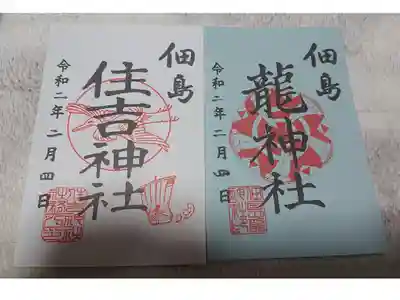 佃島
龍神社
令和二年二月四日
佃島
住吉神社
令和二年二月四日